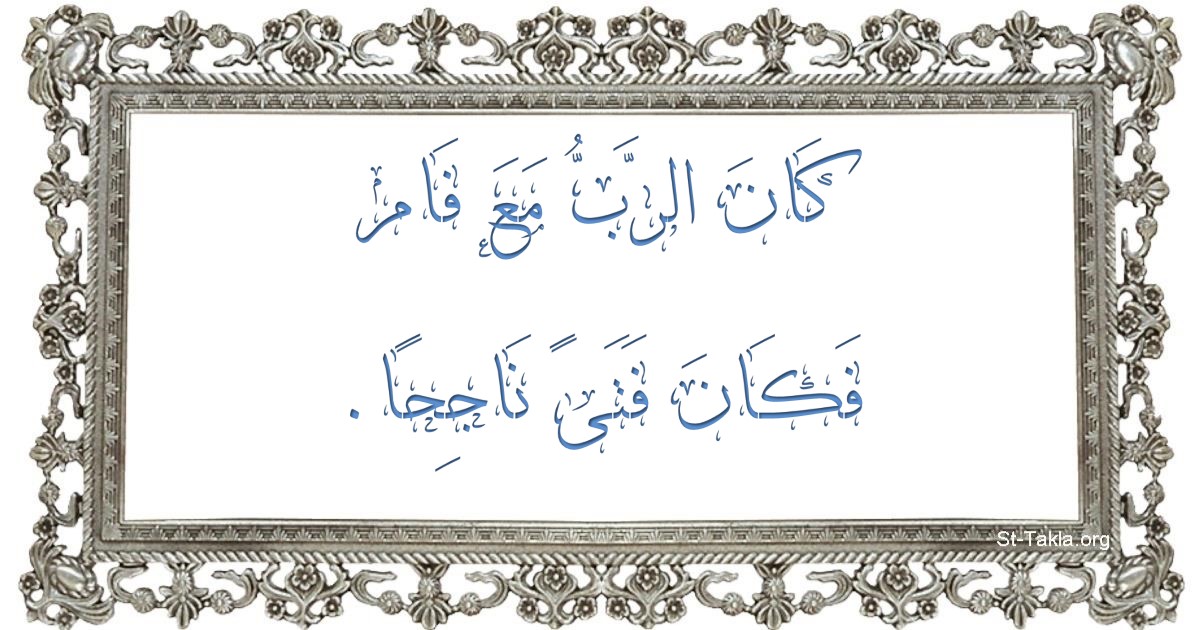 كَانَ الرَّبُّ مَعَ فَام
فَكَانَ فَتَىً نَاجِحًا .
St-Takla.org